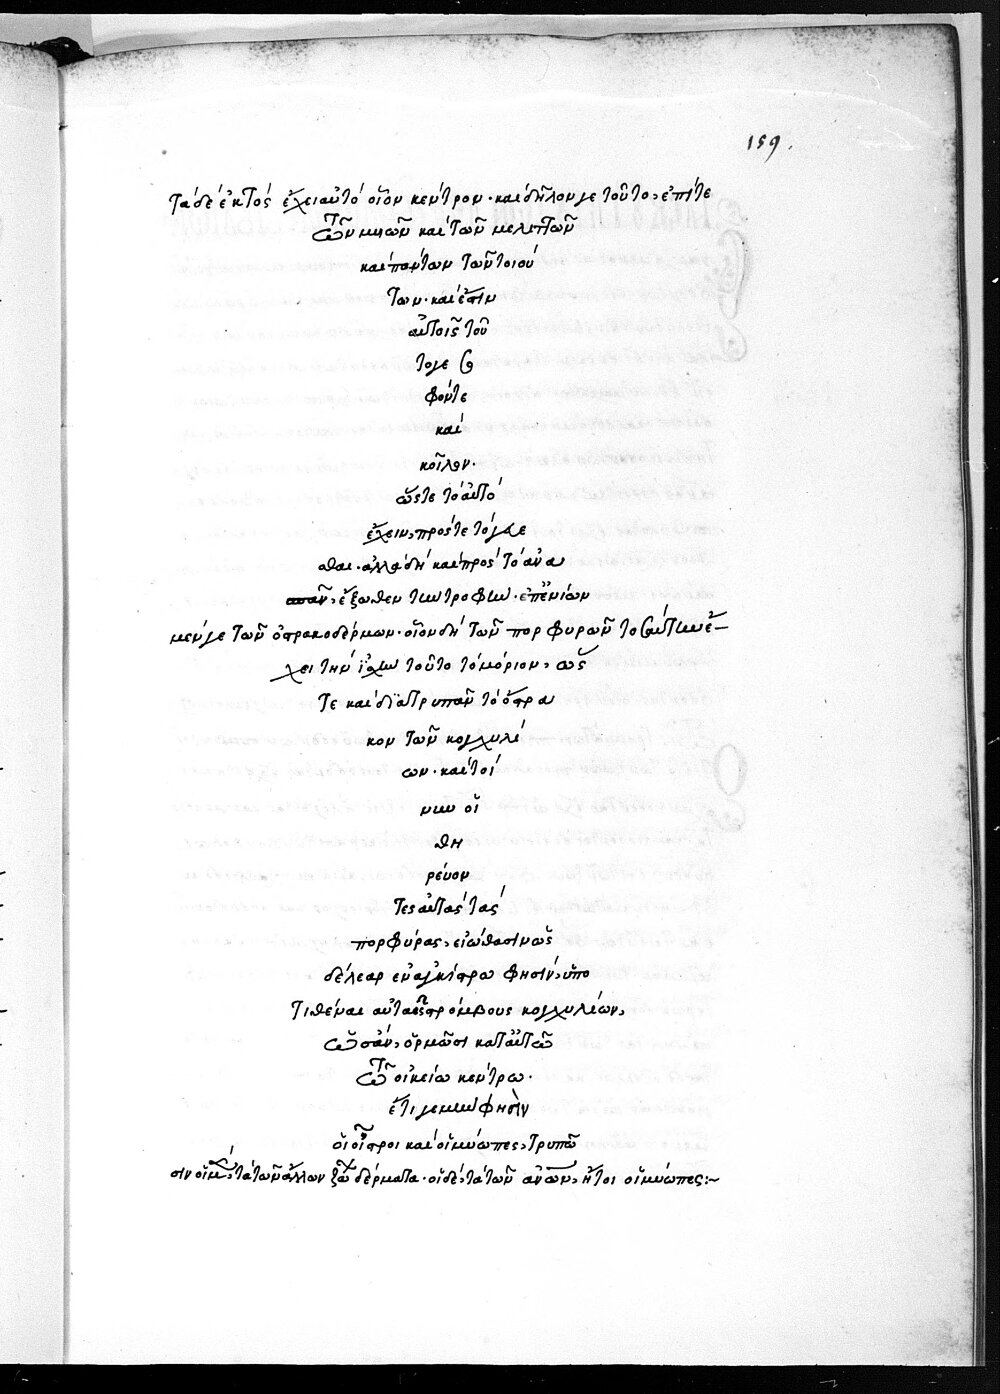 159.
τὰ δὲ ἐκτὸς ἔχει αὐτὸ οἷον κέντρον· καὶ δῆλόν γε τοῦτο, ἐπί τε
τῶν μυῶν καὶ τῶν μελιττῶν
καὶ πάντων τῶν τοιού
των· καὶ ἔστιν
αὐτοῖς τοῦ
το γε
φόν τε
καὶ
κοῖλον·
ὥστε τὸ αὐτὸ
ἔχειν, πρός τε τὸ γεύε
σθαι· ἀλλὰ δὴ καὶ πρὸς τὸ ἀνα
σπᾶν, ἔξωθεν τὴν τροφήν· ἐπ' ἐνίων
μέν γε τῶν ὀστρακοδέρμων· οἷον δὴ τῶν πορφυρῶν τοσαύτην ἔ-
χει τὴν ἰσχὺν τοῦτο τὸ μόριον, ὥς
τε καὶ διατρυπᾶν τὸ ὄστρα
κον τῶν κογχυλί
ων· καὶ τοί
νυν οἱ
θη
ρεύον
τες αὐτὰς τὰς
πορφύρας, εἰώθασιν ὡς
δέλεαρ ἐν ἀγκίστρῳ φησὶν, ὑπο
τιθέναι αὐταῖς στρόμβους κογχυλίων,
ὡς ἂν, ὁρμῶσι κατ' αὐτῶν
τῷ οἰκείῳ κέντρῳ·
ἔτι γε μὴν φησὶν
οἱ οἶστροι καὶ οἱ μύωπες, τρυπῶ
σιν οἱ μὲν, τὰ τῶν ἄλλων ζώων δέρματα· οἱ δὲ, τὰ τῶν ἀνων, ἤτοι οἱ μύωπες:~